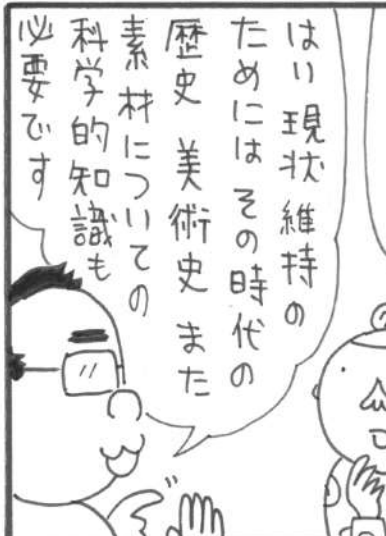 はい 現状維持の
ためには その時代の
歴史 美術史 また
素材についての
科学的知識も
必要です